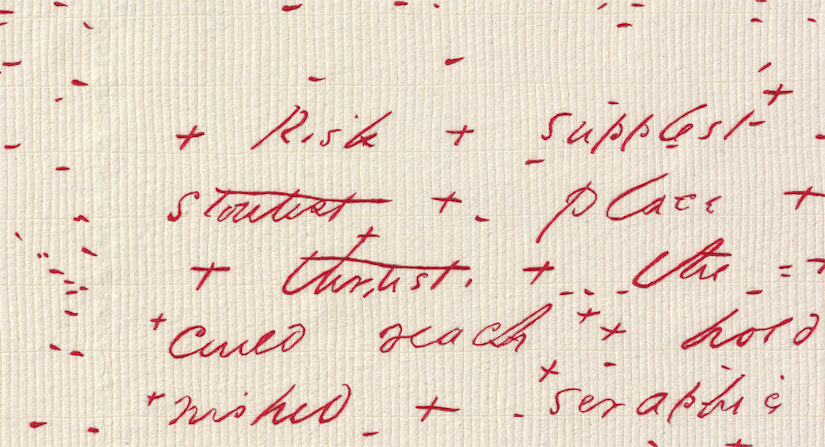 + Risk + supplest +
stoutest + place +
+ thrust. + the =
+ could reach + + hold
+ wished + - + seraphic